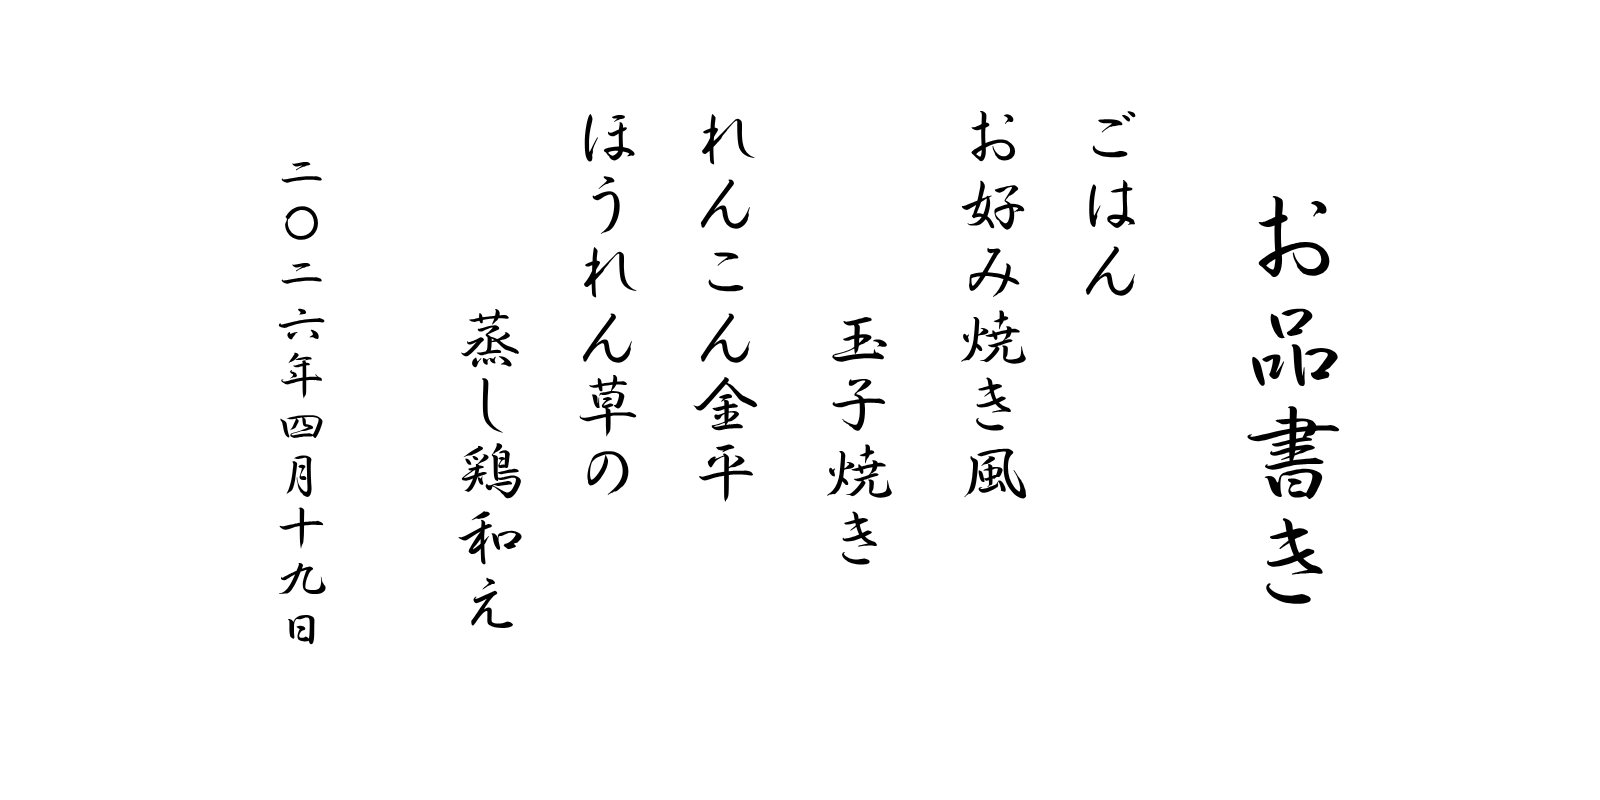 お品書き
ごはん
お好み焼き風
玉子焼き
れんこん金平
ほうれん草の
蒸し鶏和え
二〇二六年四月十九日